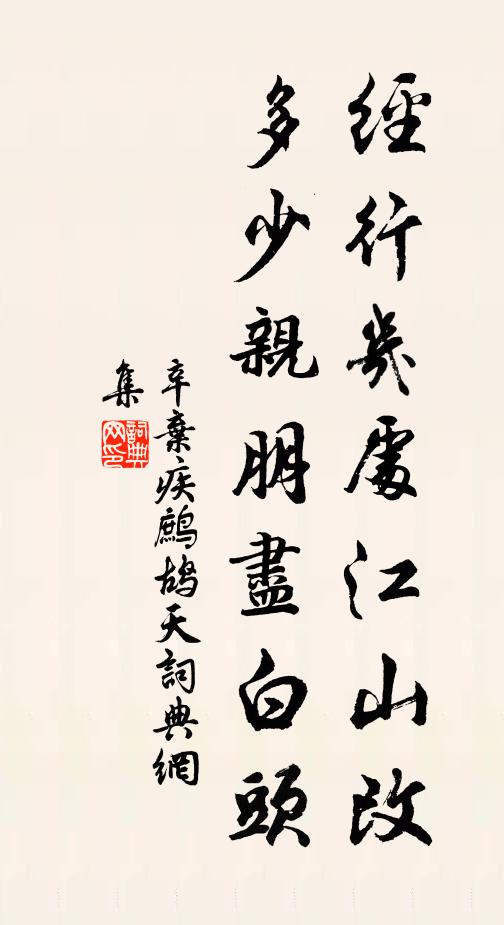 經行幾處江山改
多少親朋盡白頭
辛棄疾鷓鴣天詞典網
集
詞典
网印